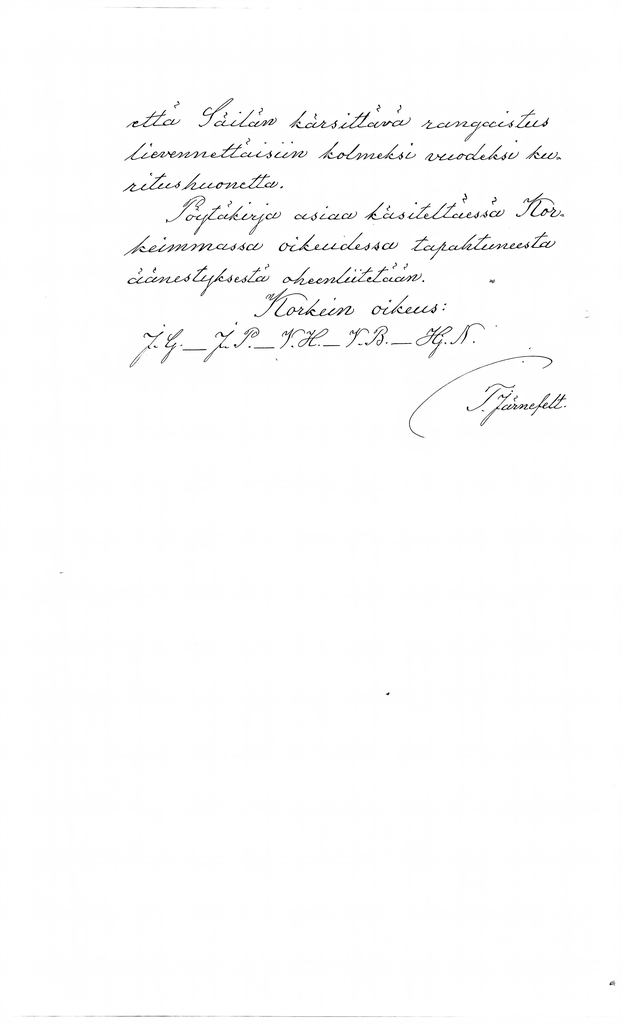 että Säilän kärsittävä rangaistus
lievennettäisiin kolmeksi vuodeksi ku-
ritushuonetta.
Pöytäkirja asiaa käsiteltäessä Kor-
keimmassa oikeudessa tapahtuneesta
äänestyksestä oheenliitetään.
Korkein oikeus:
J. G. — J. P. — V. H. — V. B. — Hj. N.
T. Järnefelt.